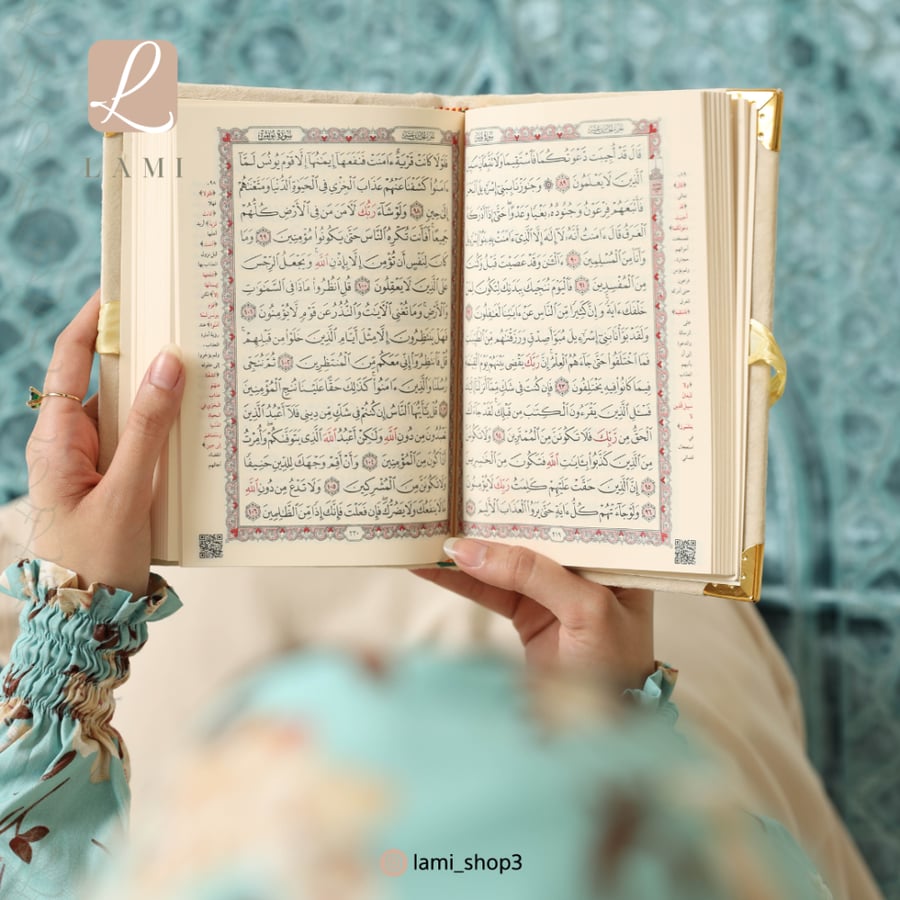 LAMI
سورة يونس
قَالَ قَدْ أُجِيبَت دَّعْوَتُكُمَا فَٱسْتَقِيمَا وَلَا
ٱلَّذِينَ لَا يَعْلَمُونَ ٨٩ ۞ وَجَٰوَزْنَا بِبَنِىٓ إِسْرَٰٓءِيلَ
فَأَتْبَعَهُمْ فِرْعَوْنُ وَجُنُودُهُۥ بَغْيًا وَعَدْوًا حَتَّىٰٓ إِذَآ أَدْرَكَهُ
ٱلْغَرَقُ قَالَ ءَامَنتُ أَنَّهُۥ لَآ إِلَٰهَ إِلَّا ٱلَّذِىٓ ءَامَنَتْ بِهِۦ بَنُوٓا۟
وَأَنَا۠ مِنَ ٱلْمُسْلِمِينَ ٩٠ ءَآلْـَٰٔنَ وَقَدْ عَصَيْتَ قَبْلُ وَكُنتَ
مِنَ ٱلْمُفْسِدِينَ ٩١ فَٱلْيَوْمَ نُنَجِّيكَ بِبَدَنِكَ لِتَكُونَ لِمَنْ
خَلْفَكَ ءَايَةً وَإِنَّ كَثِيرًا مِّنَ ٱلنَّاسِ عَنْ ءَايَٰتِنَا لَغَٰفِلُونَ
وَلَقَدْ بَوَّأْنَا بَنِىٓ إِسْرَٰٓءِيلَ مُبَوَّأَ صِدْقٍ وَرَزَقْنَٰهُم مِّنَ
فَمَا ٱخْتَلَفُوا۟ حَتَّىٰ جَآءَهُمُ ٱلْعِلْمُ إِنَّ رَبَّكَ يَقْضِى بَيْنَهُمْ يَوْمَ
فِيمَا كَانُوا۟ فِيهِ يَخْتَلِفُونَ ٩٣ فَإِن كُنتَ فِى شَكٍّ مِّمَّآ أَنزَلْنَآ
فَسْـَٔلِ ٱلَّذِينَ يَقْرَءُونَ ٱلْكِتَٰبَ مِن قَبْلِكَ لَقَدْ جَآءَكَ
ٱلْحَقُّ مِن رَّبِّكَ فَلَا تَكُونَنَّ مِنَ ٱلْمُمْتَرِينَ ٩٤ وَلَا تَكُونَنَّ
مِنَ ٱلَّذِينَ كَذَّبُوا۟ بِـَٔايَٰتِ ٱللَّهِ فَتَكُونَ مِنَ ٱلْخَٰسِرِينَ
٩٥ إِنَّ ٱلَّذِينَ حَقَّتْ عَلَيْهِمْ كَلِمَتُ رَبِّكَ لَا يُؤْمِنُونَ
٩٦ وَلَوْ جَآءَتْهُمْ كُلُّ ءَايَةٍ حَتَّىٰ يَرَوُا۟ ٱلْعَذَابَ ٱلْأَلِيمَ
٢١٩
سورة يونس
فَلَوْلَا كَانَتْ قَرْيَةٌ ءَامَنَتْ فَنَفَعَهَآ إِيمَٰنُهَآ إِلَّا قَوْمَ يُونُسَ لَمَّآ
ءَامَنُوا۟ كَشَفْنَا عَنْهُمْ عَذَابَ ٱلْخِزْىِ فِى ٱلْحَيَوٰةِ ٱلدُّنْيَا وَمَتَّعْنَٰهُمْ
إِلَىٰ حِينٍ ٩٨ وَلَوْ شَآءَ رَبُّكَ لَـَٔامَنَ مَن فِى ٱلْأَرْضِ كُلُّهُمْ
جَمِيعًا أَفَأَنتَ تُكْرِهُ ٱلنَّاسَ حَتَّىٰ يَكُونُوا۟ مُؤْمِنِينَ ٩٩ وَمَا
كَانَ لِنَفْسٍ أَن تُؤْمِنَ إِلَّا بِإِذْنِ ٱللَّهِ وَيَجْعَلُ ٱلرِّجْسَ
عَلَى ٱلَّذِينَ لَا يَعْقِلُونَ ١٠٠ قُلِ ٱنظُرُوا۟ مَاذَا فِى ٱلسَّمَٰوَٰتِ
وَٱلْأَرْضِ وَمَا تُغْنِى ٱلْءَايَٰتُ وَٱلنُّذُرُ عَن قَوْمٍ لَّا يُؤْمِنُونَ ١٠١
فَهَلْ يَنتَظِرُونَ إِلَّا مِثْلَ أَيَّامِ ٱلَّذِينَ خَلَوْا۟ مِن قَبْلِهِمْ
قُلْ فَٱنتَظِرُوٓا۟ إِنِّى مَعَكُم مِّنَ ٱلْمُنتَظِرِينَ ١٠٢ ثُمَّ نُنَجِّى
رُسُلَنَا وَٱلَّذِينَ ءَامَنُوا۟ كَذَٰلِكَ حَقًّا عَلَيْنَا نُنجِ ٱلْمُؤْمِنِينَ
١٠٣ قُلْ يَٰٓأَيُّهَا ٱلنَّاسُ إِن كُنتُمْ فِى شَكٍّ مِّن دِينِى فَلَآ أَعْبُدُ ٱلَّذِينَ
تَعْبُدُونَ مِن دُونِ ٱللَّهِ وَلَٰكِنْ أَعْبُدُ ٱللَّهَ ٱلَّذِى يَتَوَفَّىٰكُمْ وَأُمِرْتُ
أَنْ أَكُونَ مِنَ ٱلْمُؤْمِنِينَ ١٠٤ وَأَنْ أَقِمْ وَجْهَكَ لِلدِّينِ حَنِيفًا
وَلَا تَكُونَنَّ مِنَ ٱلْمُشْرِكِينَ ١٠٥ وَلَا تَدْعُ مِن دُونِ ٱللَّهِ
مَا لَا يَنفَعُكَ وَلَا يَضُرُّكَ فَإِن فَعَلْتَ فَإِنَّكَ إِذًا مِّنَ ٱلظَّٰلِمِينَ ١٠٦
٢٢٠
lami_shop3